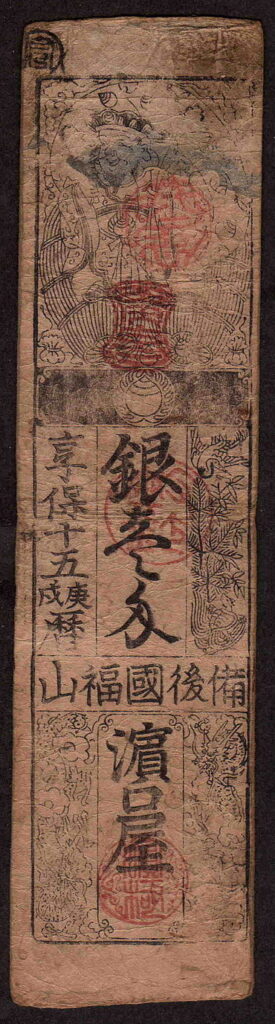 銀壹匁
享保十五庚戌暦
備後國福山
濱口屋